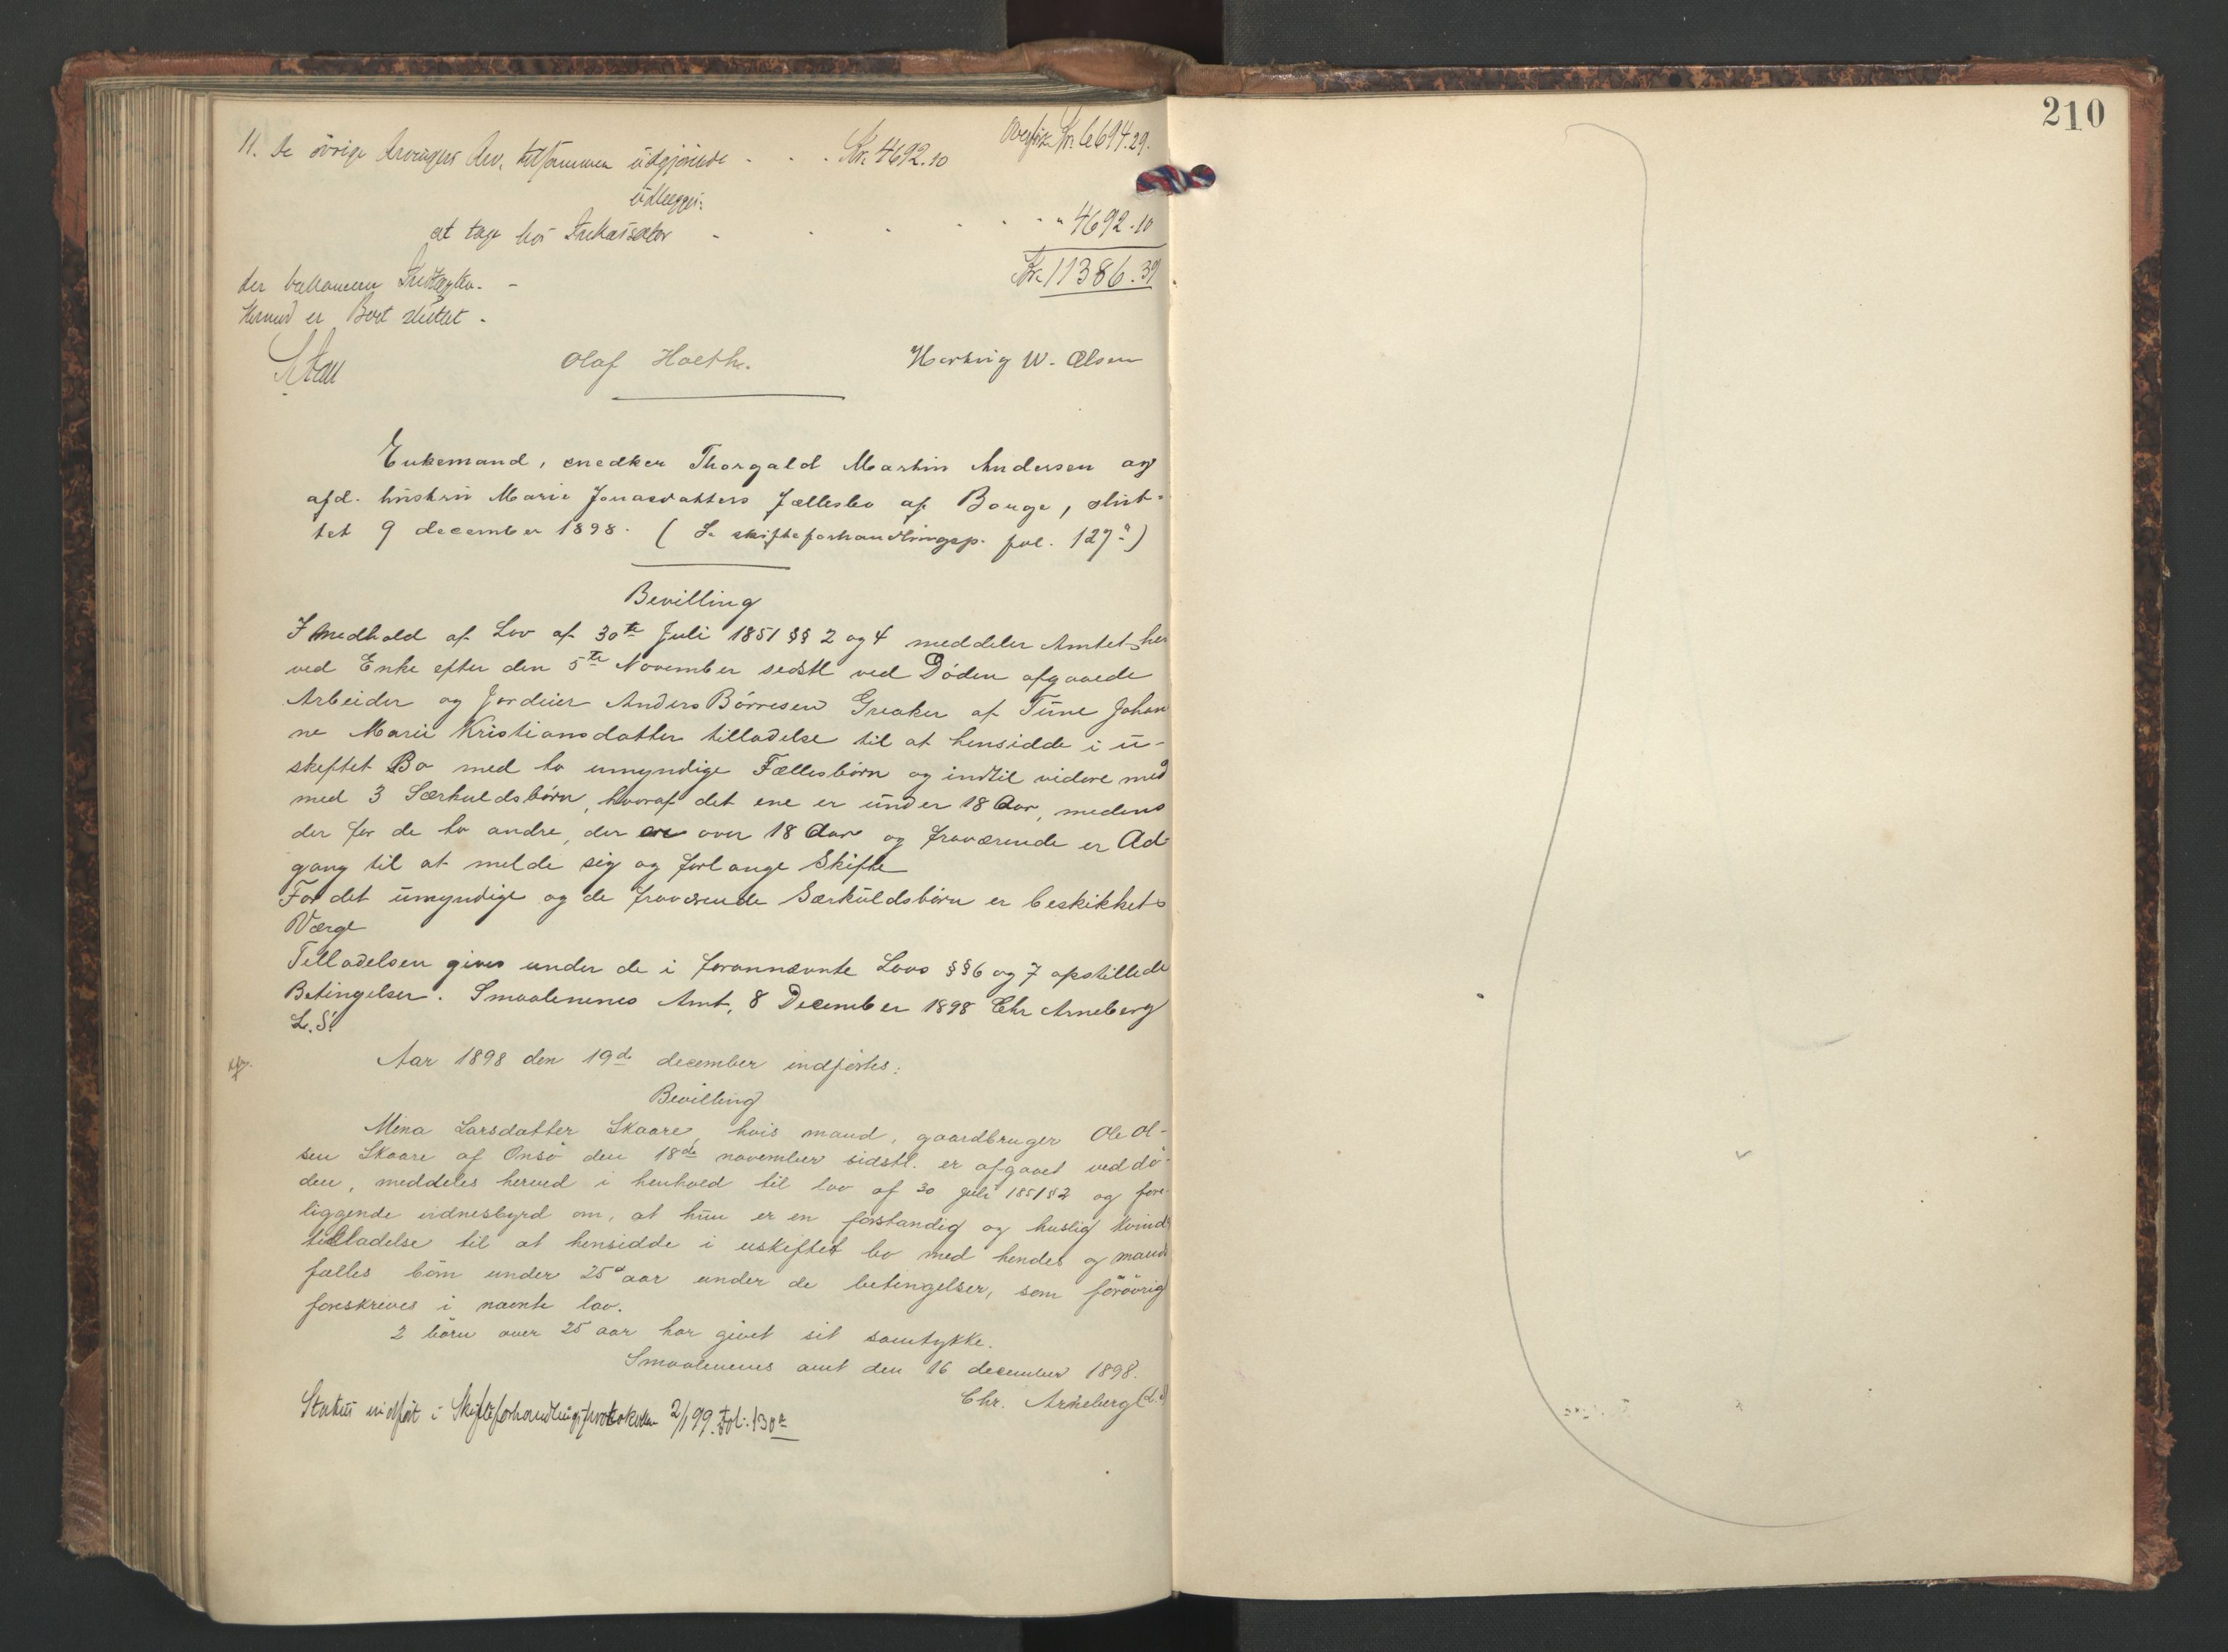 210
Kr. 6694.29.
11. De övrige tilsammen üdgjørende . . . Kr. 4692.10
üdlægges:
at tage hos Inkassator - . . . . . " 4692.10
Kr. 11386.39
der balancerer
Hermed er Boet sluttet.
Olaf Holth. Hartvig W. Olsen
Enkemand, snedker Thorvald Martin Andersen og
afd. hüstrü Marie Jonasdatters fællesbo af Borge, slut-
tet 9 december 1898. (Se skifteforhandlingsp. fol. 127a)
Bevilling
I Medhold af Lov af 30te Juli 1851 §§ 2 og 4 meddeler Amtet her
ved Enke efter den 5te November sidstl ved Døden afgaaede
Arbeider og Jordeier Anders Børresen Greaker af Tüne Johan
ne Marie Kristiansdatter tilladelse til at hensidde i ü-
skiftet Bo med to umyndige Fællesbørn og indtil videre med
med 3 Særkuldsbørn, hvoraf det ene er ünder 18 Aar, medens
der for de to andre, der ere over 18 Aar og fraværende er Ad-
gang til at melde sig og forlange Skifte
For det ümyndige og de fraværende Særküldsbørn er beskikket
Værge
Tilladelsen gives under de i forannævnte Lovs §§ 6 og 7 opstillede
Betingelser. Smaalenenes Amt, 8 December 1898 Chr Arneberg
L.S.
Aar 1898 den 19de december indførtes:
Bevilling
Mina Larsdatter Skaare, hvis mand, gaardbruger Ole Ol-
sen Skaare af Onsö den 18de november sidstl. er afgaaet ved dö-
den, meddeles herved i henhold til lov af 30 juli 1851 § 2 og fore-
liggende vidnesbyrd om, at hün er en forstandig og huslig kvind
tilladelse til at hensidde i uskiftet bo med hendes og mands
fælles börn under 25 aar under de betingelser, som förövrig
foreskrives i nævnte lov.
2 börn over 25 aar har givet sit samtykke.
Smaalenenes amt den 16 december 1898.
Chr. Arneberg (L.S.)
Status indført i Skifteforhandlingsprotokollen 2/1 99. Fol: 130a